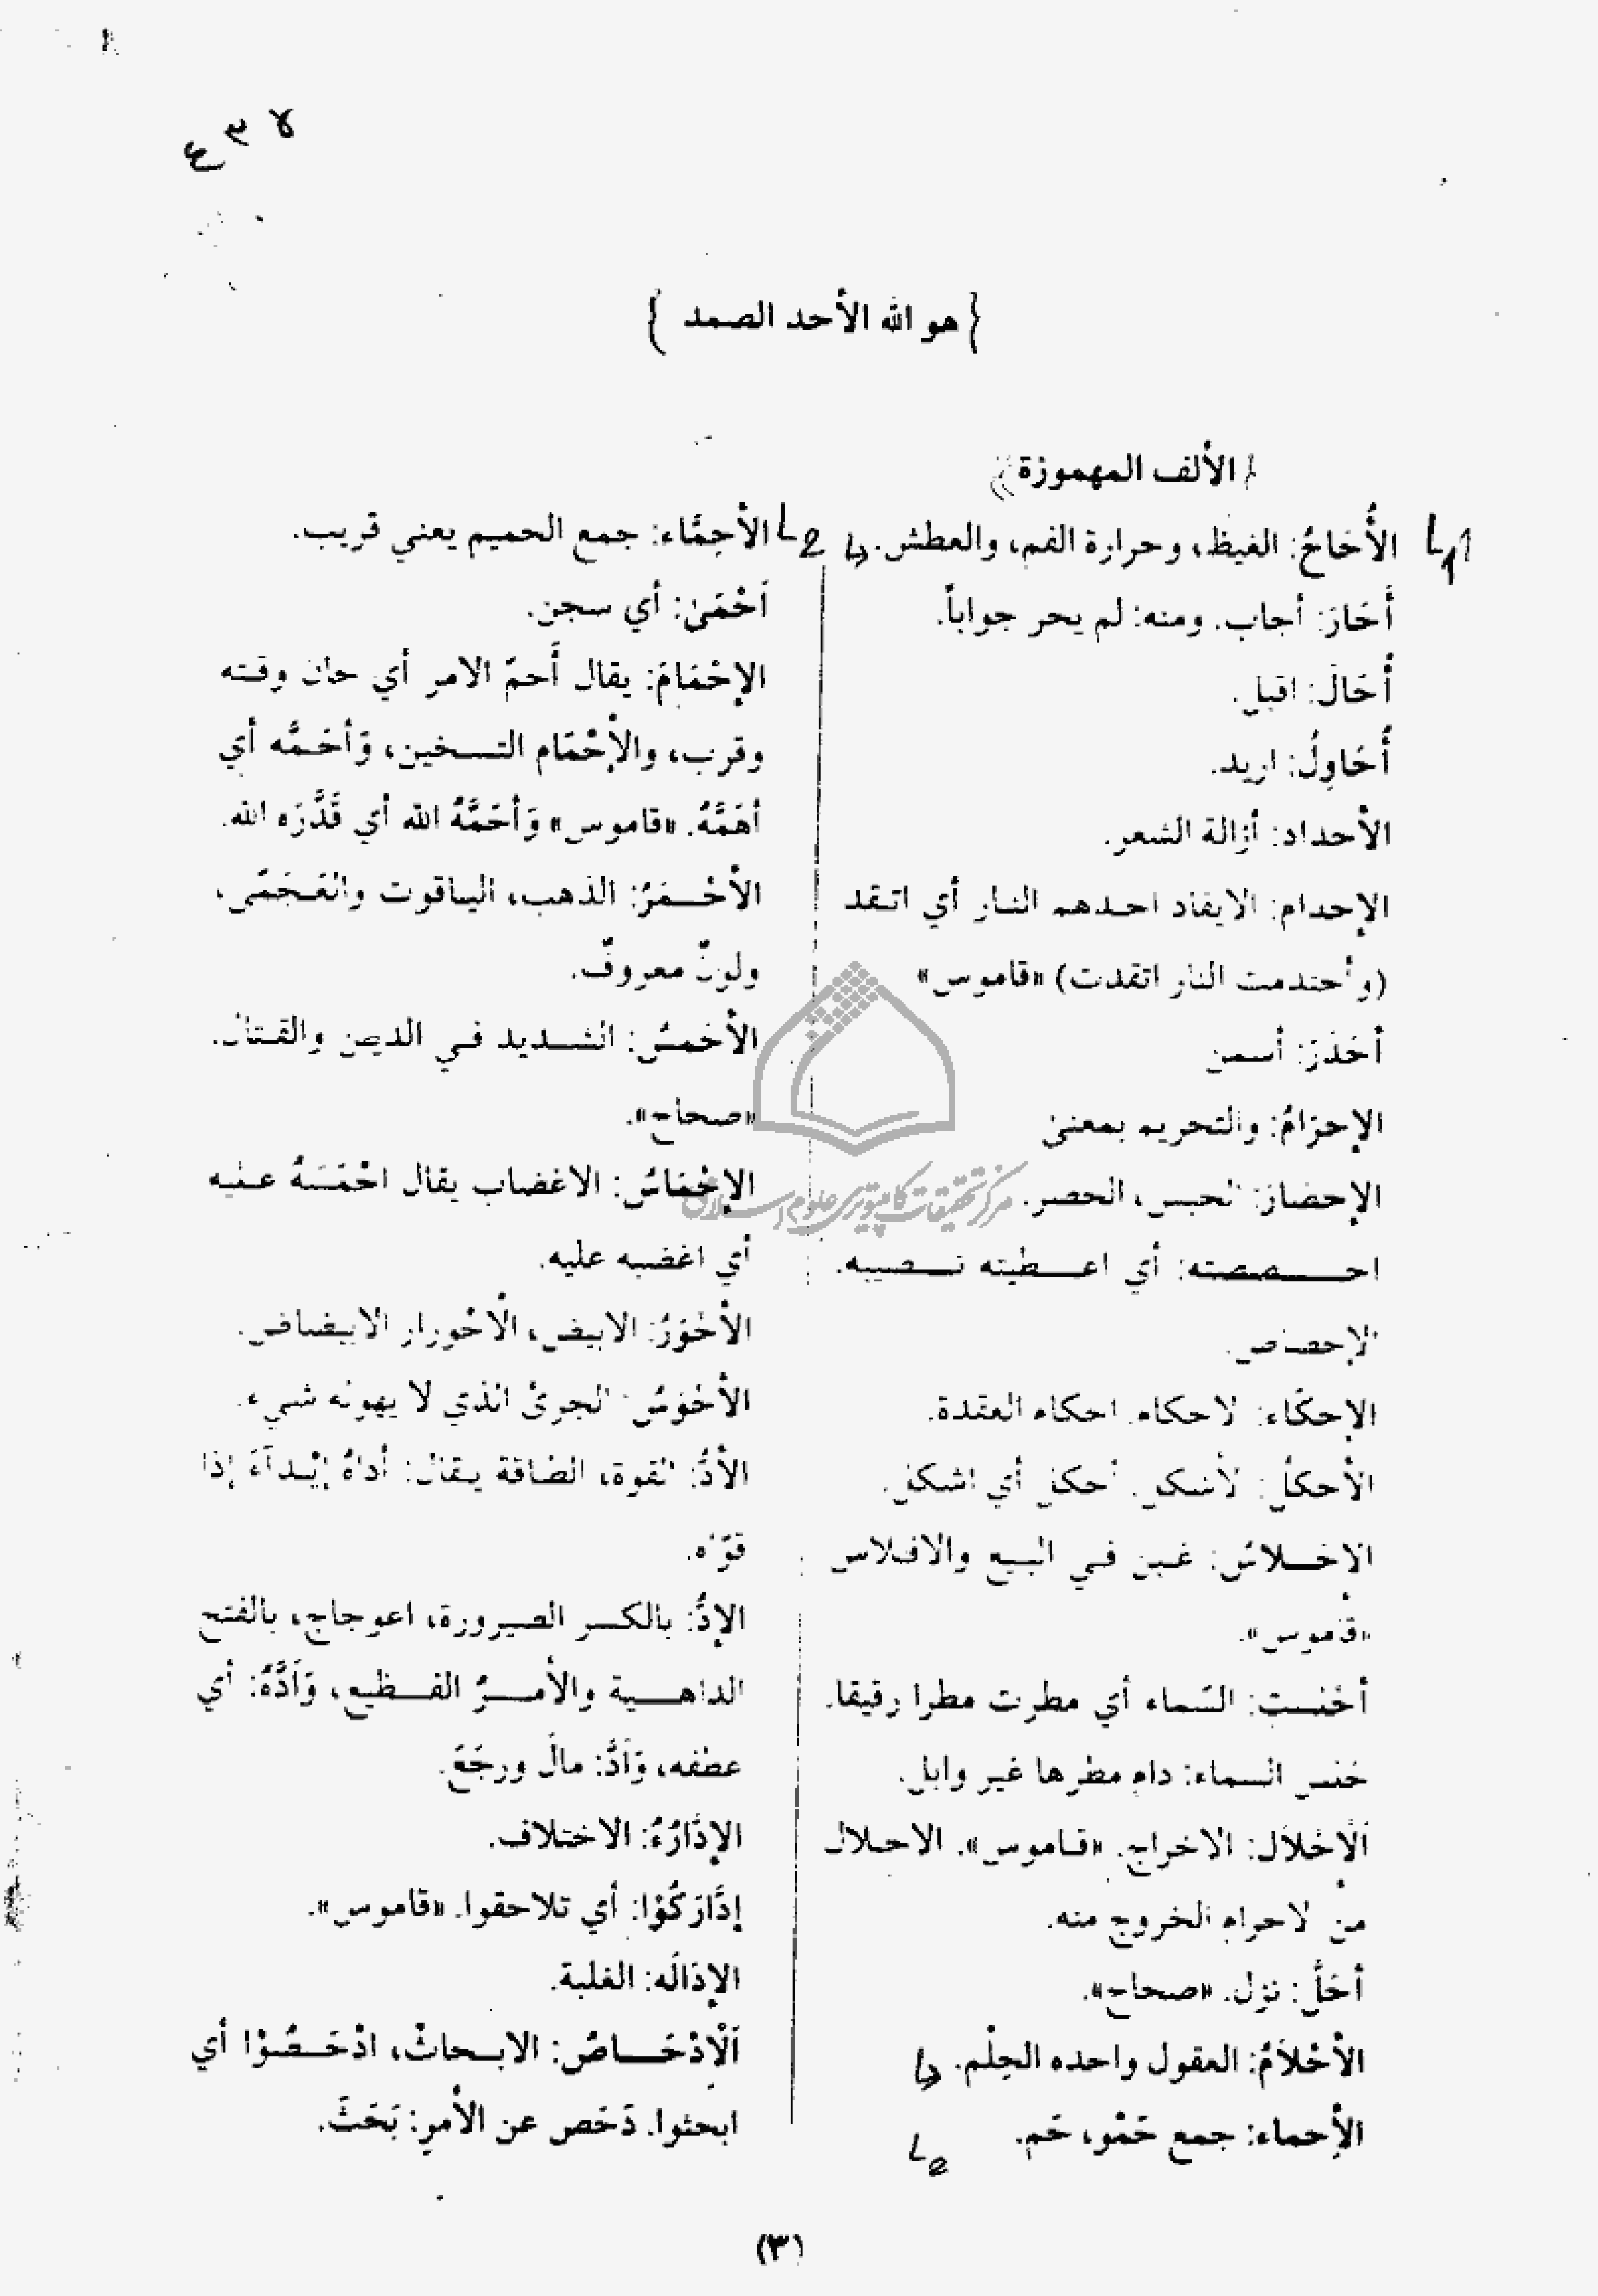 {هو الله الأحد الصمد}
الألف المهموزة
الأُحَاحُ: الغيظ، وحرارة الفم، والعطش.
أَحَارَ: أجاب. ومنه: لم يحر جواباً.
أُحَالَ: اقبل.
أُحَاوِلُ: اريد.
الأحداد: أزالة الشعر.
الإحدام: الايقاد احدهم النار أي اتقد
(وأحتدمت النار اتقدت) «قاموس»
أحَدَرَ: أسمن
الإحرَامُ: والتحريم بمعنىٰ
الإحصَارَ: الحبس، الحصر.
احصصته: أي اعطيته نصيبه.
الإحصاص.
الإحكَاء: لاحكام. احكاء العقدة.
الأحكلُ: لأشكل. أحكل أي اشكل.
الاحلاسُ: غبن في البيع والافلاس
«قاموس».
أحْلستِ: السَماء أي مطرت مطرا رقيقا.
حَلس السماء: دام مطرها غير وابل.
اَلْإحْلَال: الاخراج. «قاموس». الاحلال
من لاحرام الخروج منه.
أحَلَّ: نزل. «صحاح».
الأحْلاَمُ: العقول واحده الحِلْم.
الأحماء: جمع حَمْو، حَم.
الأحِمَّاء: جمع الحميم يعني قريب.
اَحْمَىٰ: أي سجن.
الإحْمَامَ: يقال أَحمّ الامر أي حان وقته
وقرب، والإحْمَام التسخين، وَأحَمَّه أي
أهَمَّهُ. «قاموس» وَأحَمَّهُ الله أي قَدَّرَه الله.
الأحْمَرُ: الذهب، الياقوت والعَجَمّى،
ولونٌ معروفٌ.
الأحَمسُ: الشديد في الدين والقتال.
«صحاح».
الإحْمَاسُ: الاغضاب يقال احْمَسَهُ عليه
أي اغضبه عليه.
الأحْوَرُ: الابيض، الْاحْورار الابيضاض.
الأحْوَسُ: الجرئ الذي لا يهوله شيء.
الأدُّ: القوة، الطاقة يقال: أداهُ إيْدآءَ إذا
قوّاه.
الإدُّ: بالكسر الصيرورة، اعوجاج، بالفتح
الداهية والأمرُ الفظيع، وَاَدَّهُ: أي
عطفه، وَاَدَّ: مالَ ورجَعَ.
الإدَّارُءُ: الاختلاف.
إدَّارَكُوْا: أي تلاحقوا. «قاموس».
الإدَالَه: الغلبة.
اَلْإدْحَاصُ: الابحاث، ادْحَصُوْا أي
ابحثوا. دَحَص عن الأمرِ: بَحَثَ.
(٣)